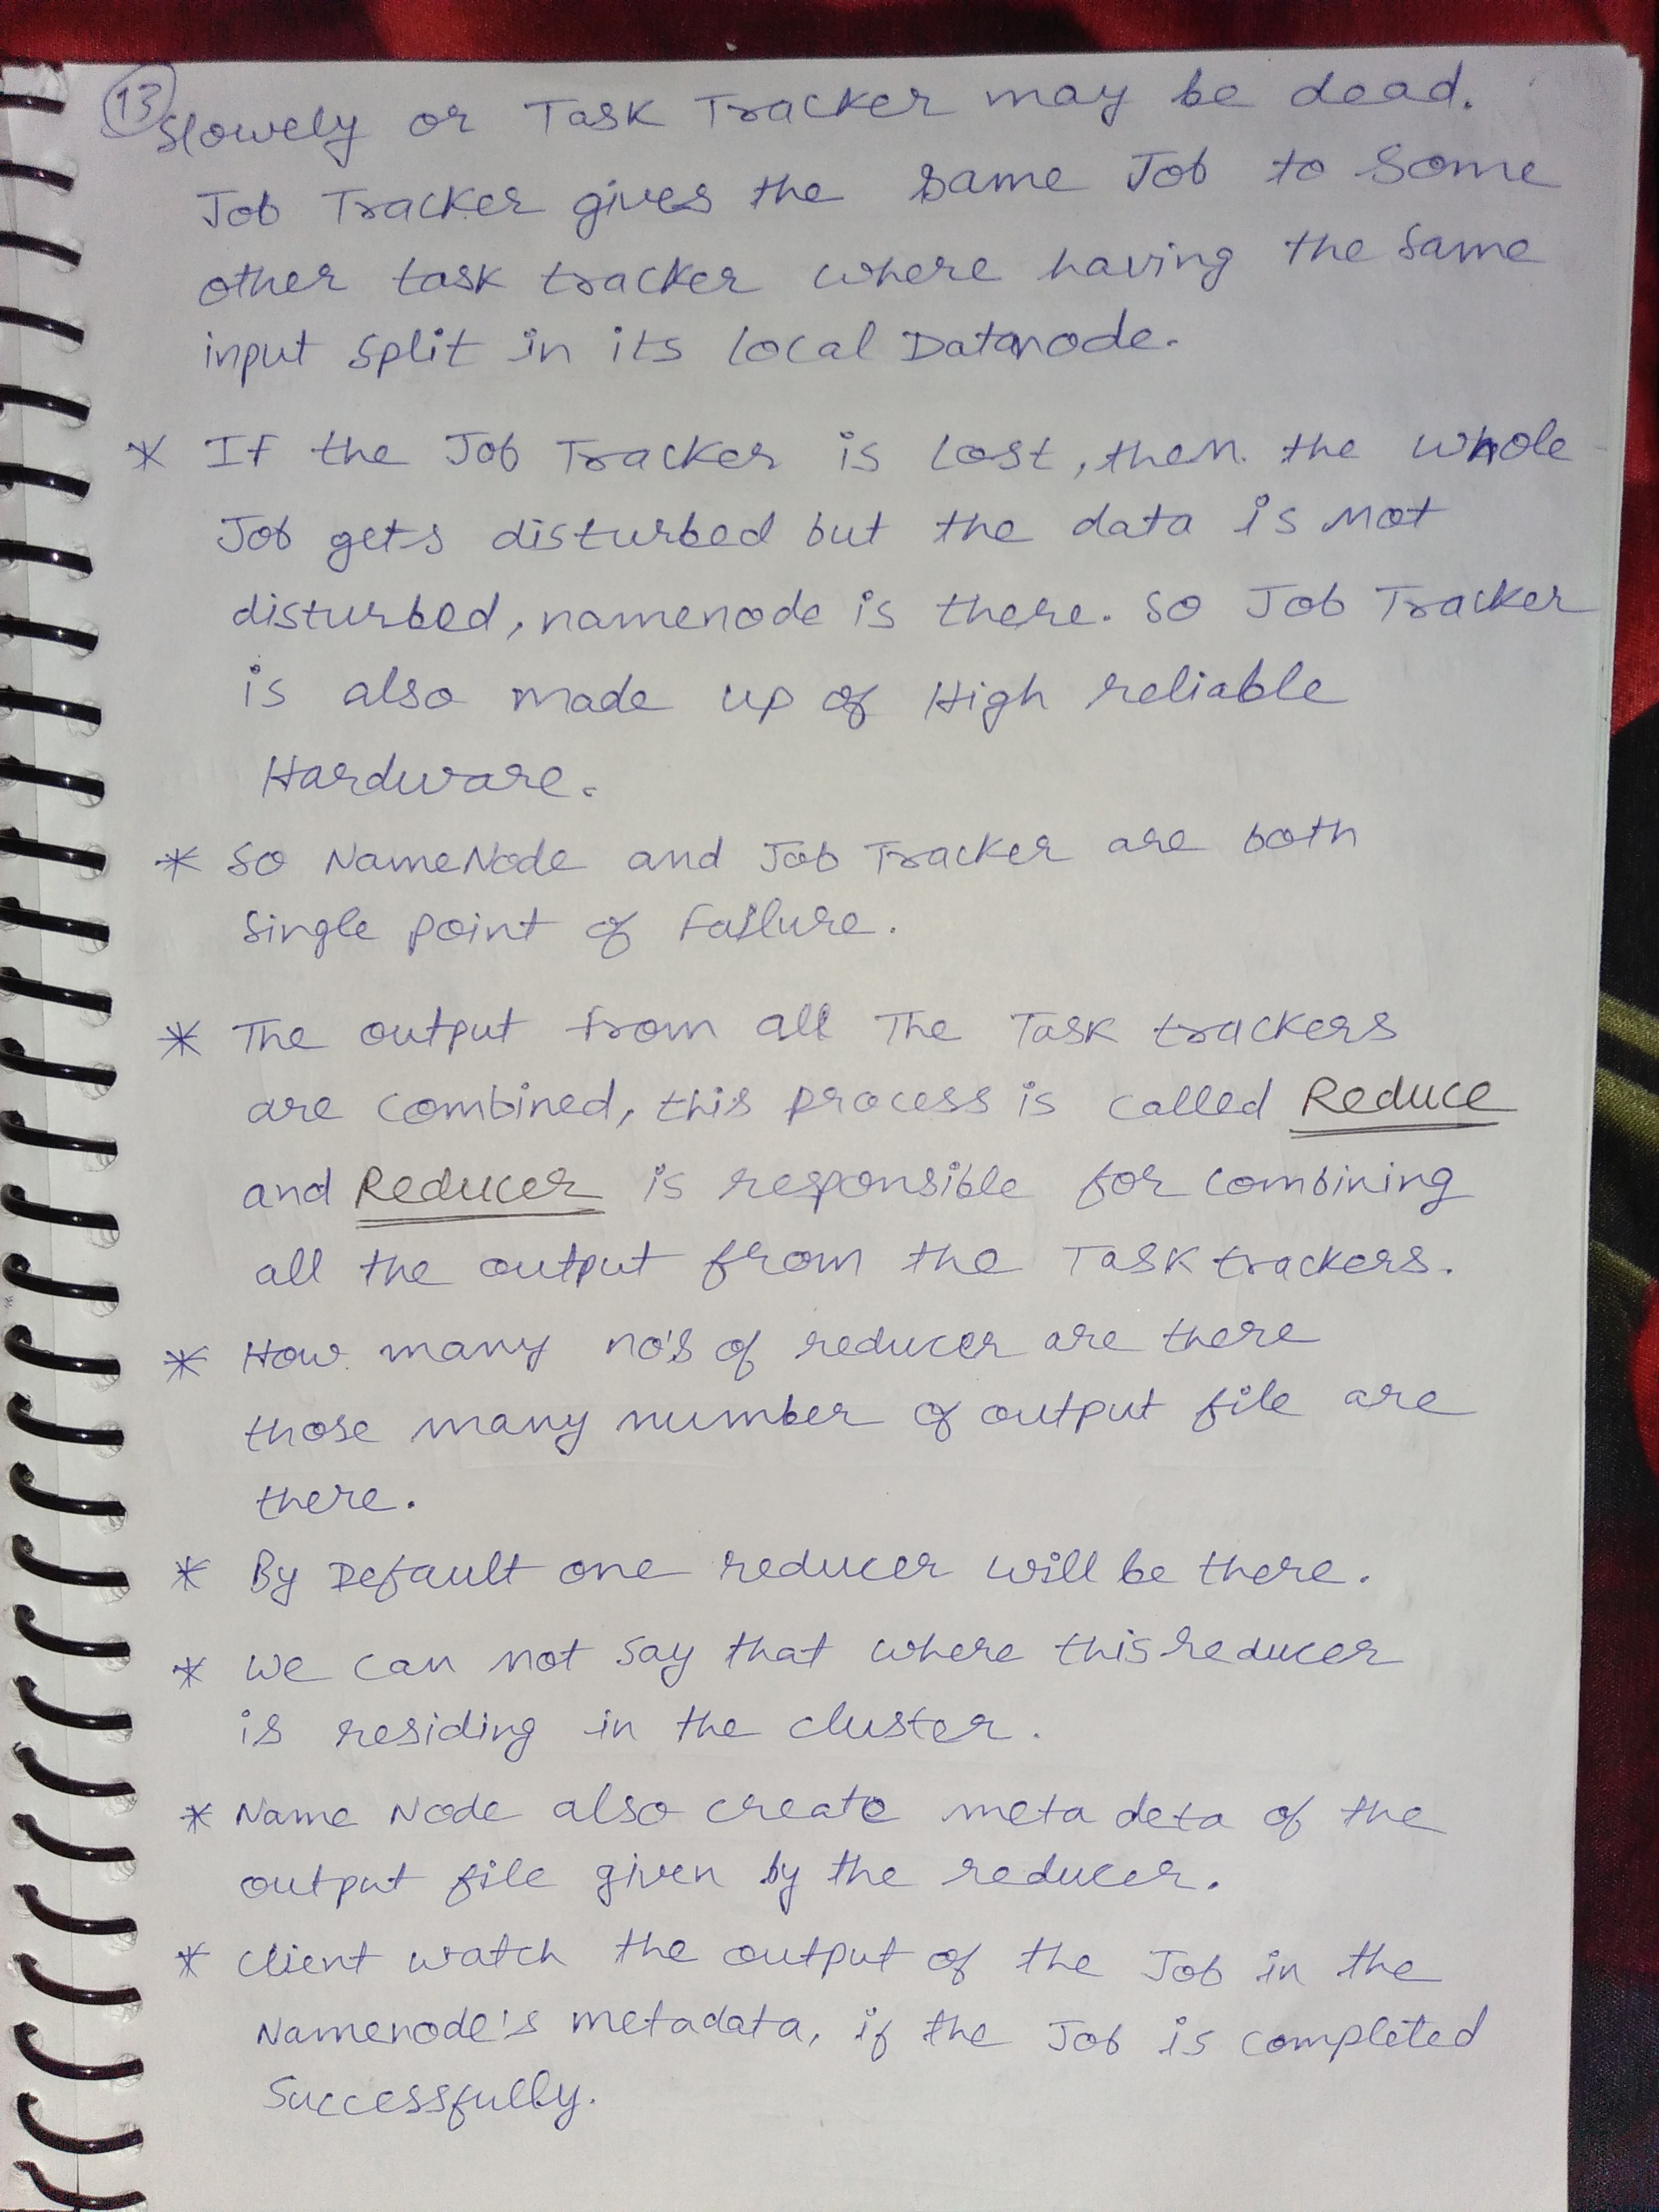 13
slowely or Task Tracker may be dead.
Job Tracker gives the same Job to some
other task tracker where having the same
input split in its local Datanode.
* If the Job Tracker is lost, then the whole
Job gets disturbed but the data is not
disturbed, namenode is there. So Job Tracker
is also made up of High reliable
Hardware.
* So NameNode and Job Tracker are both
single point of failure.
* The output from all The Task trackers
are combined, this process is called Reduce
and Reducer is responsible for combining
all the output from the Task trackers.
* How many no's of reducer are there
those many number of output file are
there.
* By Default one reducer will be there.
* We can not say that where this reducer
is residing in the cluster.
* Name Node also create meta deta of the
output file given by the reducer.
* Client watch the output of the Job in the
Namenode's metadata, if the Job is completed
Successfully.